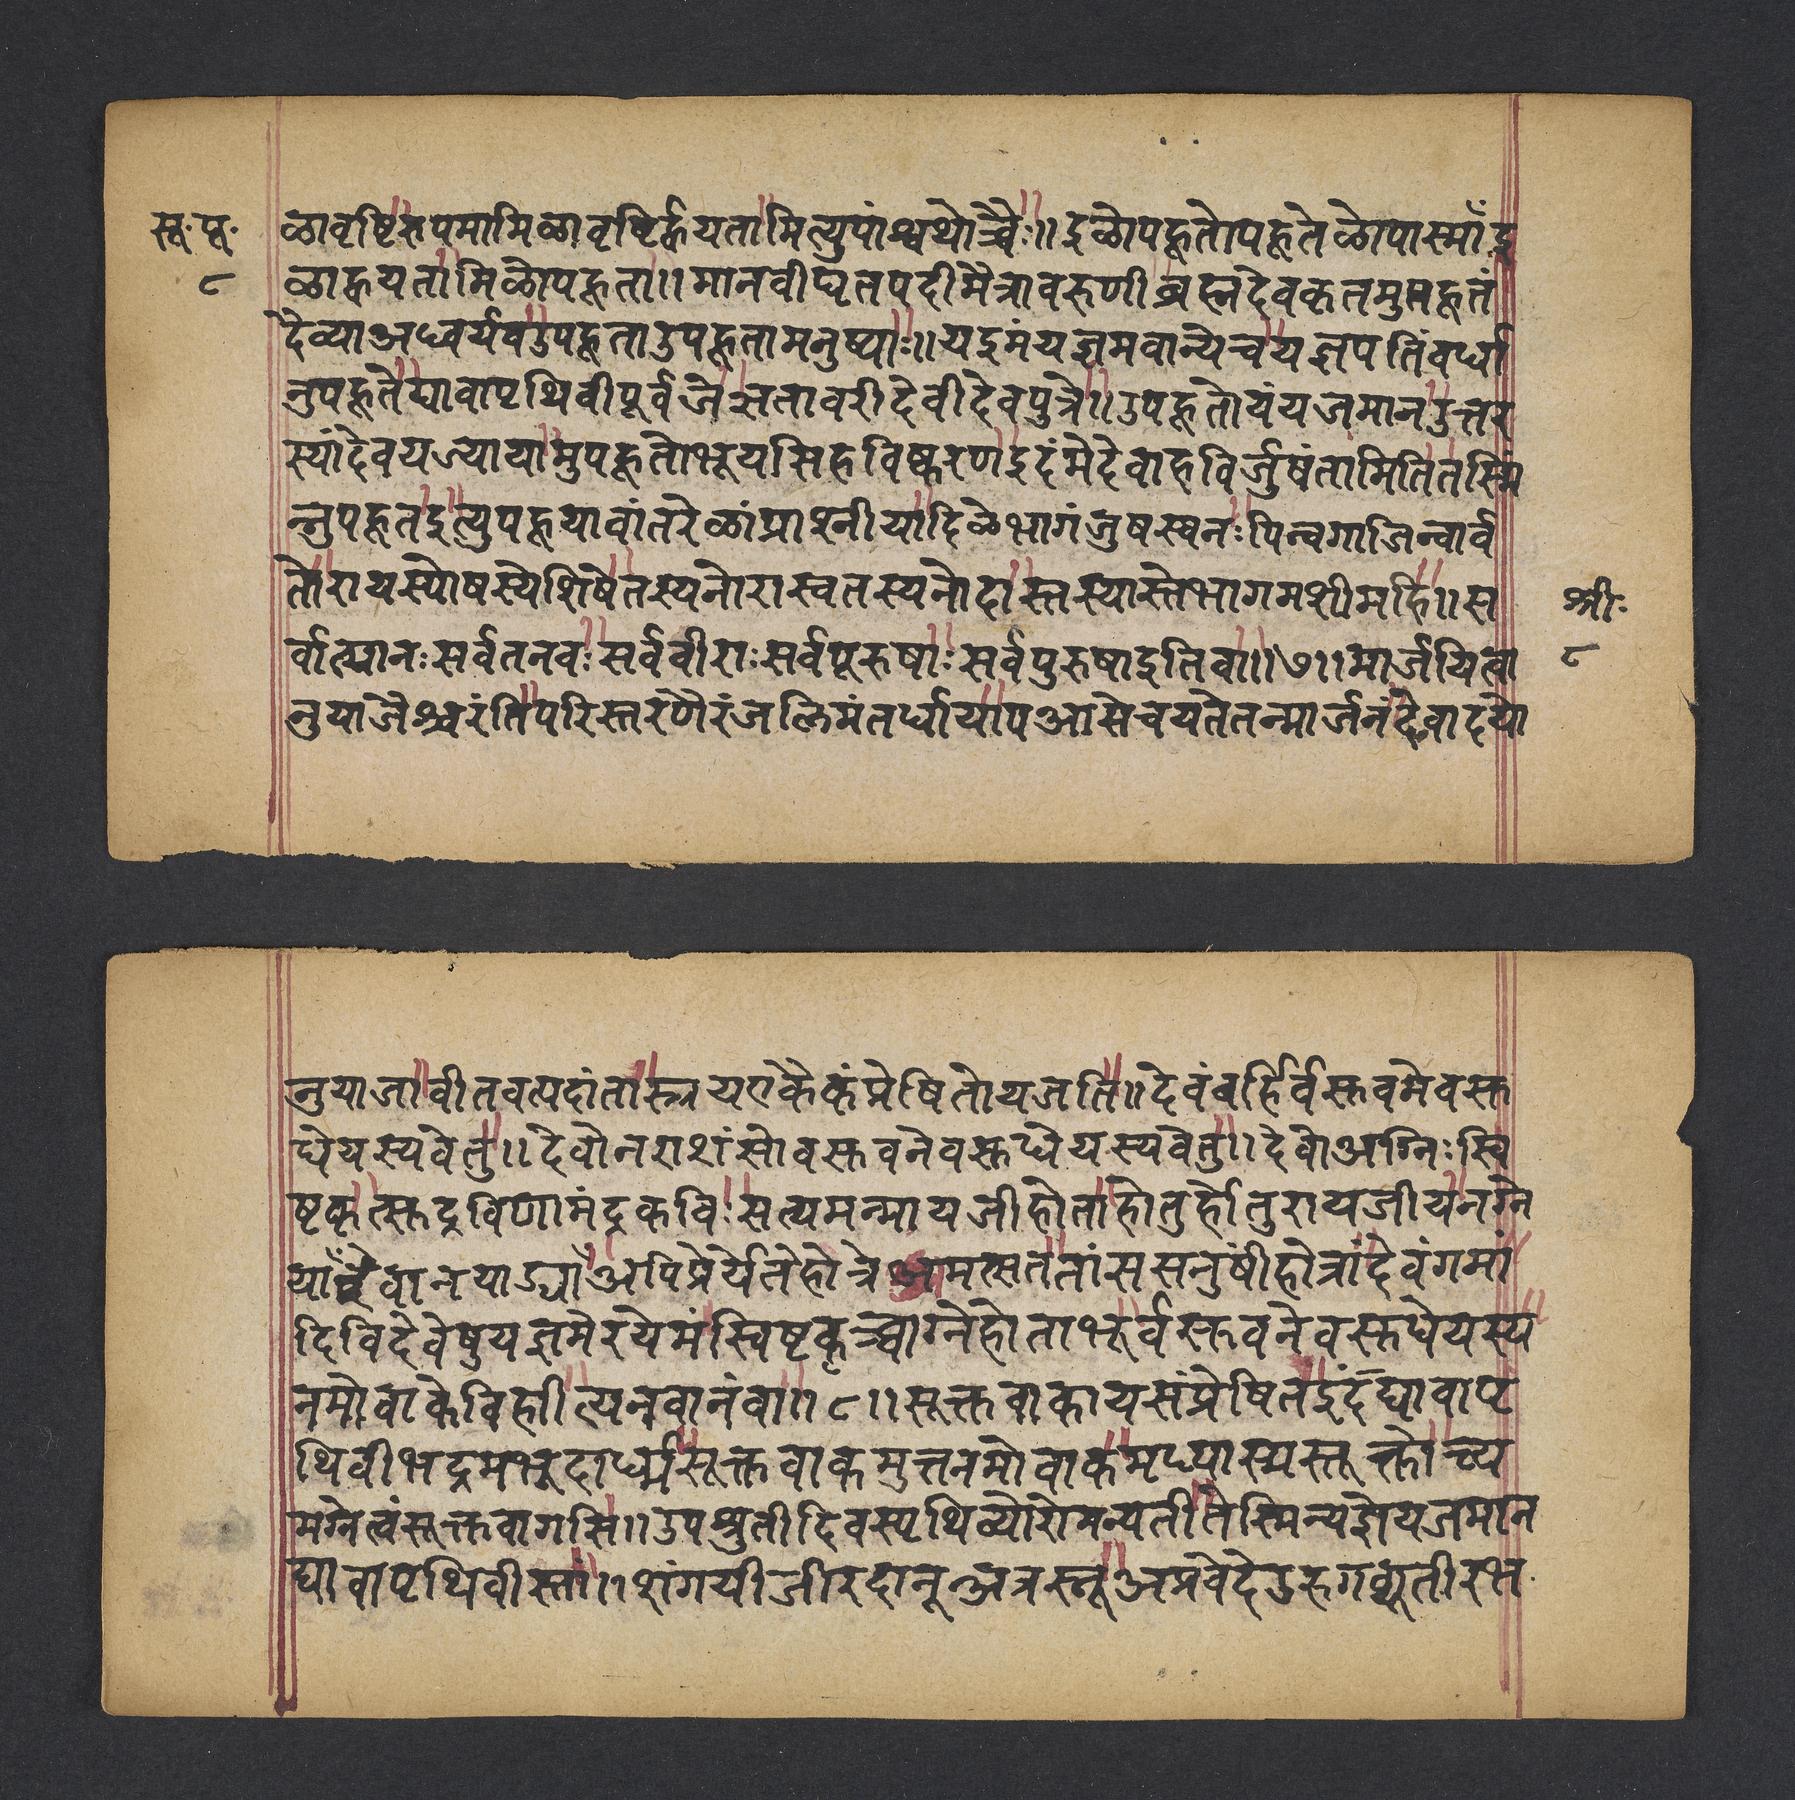 सू॰ पू॰
८
ळावृष्टिरुपमामिळावृष्टिर्ह्वयतामित्युपांश्वथोच्चैः॥इळोपहूतोपहूतेळोपास्माँइ
ळाह्वयतामिळोपहूता॥मानवीघृतपदीमैत्रावरुणीब्रह्मदेवकृतमुपहूतं
दैव्याअध्वर्यवउपहूताउपहूतामनुष्याः॥यइमंयज्ञमवान्येचयज्ञपतिंवर्धा
नुपहूतेद्यावापृथिवीपूर्वजेऋतावरीदेवीदेवपुत्रे॥उपहूतोयंयजमानउत्तर
स्यांदेवयज्यायामुपहूतोभूयसिहविष्करणइदंमेदेवाहविर्जुषंतामितितस्मिं
न्नुपहूतइत्युपहूयावांतरेळांप्राश्नीयादिळेभागंजुषस्वनःपिन्वगाजिन्वार्व
तोरायस्पोषस्येशिषेतस्यनोरास्वतस्यनोदास्तस्यास्तेभागमशीमहि॥स
र्वात्मानःसर्वतनवःसर्ववीराःसर्वपूरुषाःसर्वपुरुषाइतिवा॥७॥मार्जयित्वा
नुयाजैश्चरंतिपरिस्तरणैरंजलिमंतर्धायापआसेचयतेतन्मार्जनंदेवादयो
श्रीः
८
नुयाजावीतवत्पदांतास्त्रयएकैकंप्रेषितोयजति॥देवंबर्हिर्वसुवनेवसु
धेयस्यवेतु॥देवोनराशंसोवसुवनेवसुधेयस्यवेतु॥देवोअग्निःस्वि
ष्टकृत्सुद्रविणामंद्रकविःसत्यमन्मायजीहोताहोतुर्होतुरायजीयानग्ने
याँदेवानयाड्याँअपिप्रेर्येतेहोत्रेअमत्सततांससनुषींहोत्रांदेवंगमां
दिविदेवेषुयज्ञमेरयेमंस्विष्टकृच्चाग्नेहोताभूर्वसुवनेवसुधेयस्य
नमोवाकेवीहीत्यनवानंवा॥८॥सूक्तवाकायसंप्रेषितइदंद्यावापृ
थिवीभद्रमभूदार्ध्मसूक्तवाकमुत्तनमोवाकमृध्यास्मसूक्तोच्य
मग्नेत्वंसूक्तवागसि॥उपश्रुतीदिवस्पृथिव्योरोमन्वतीतेस्मिन्यज्ञेयजमान
द्यावापृथिवीस्तां॥शंगयीजीरदानूअत्रस्नूअप्रवेदेउरुगव्यूतीअभ